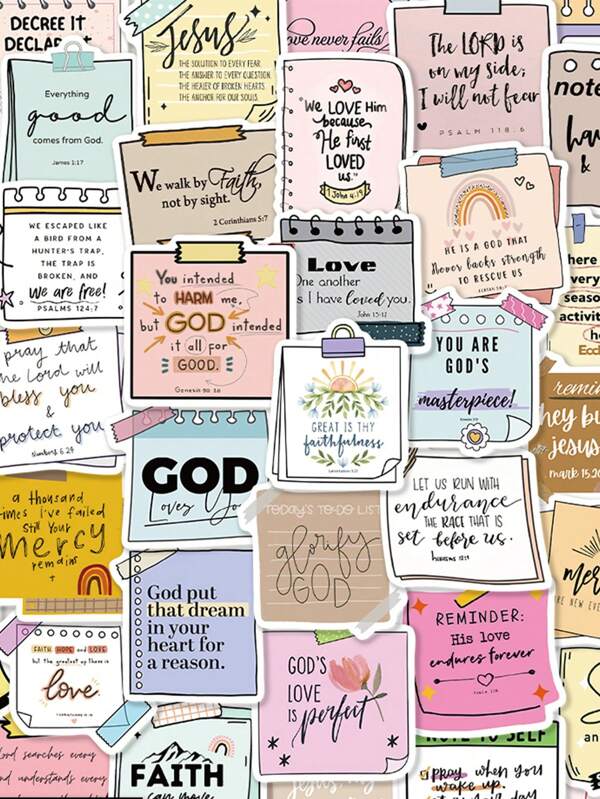 DECREE IT
Everything
good
comes from God.
James 1:17
Jesus
THE SOLUTION TO EVERY FEAR.
THE ANSWER TO EVERY QUESTION.
THE HEALER OF BROKEN HEARTS.
THE ANCHOR FOR OUR SOULS.
never fails
The LORD is
on my side;
I will not fear
PSALM 118:6
note
We walk by Faith,
not by sight.
2 Corinthians 5:7
"We LOVE Him
because,
He first
LOVED
us."
1 John 4:19
HE IS A GOD THAT
Never lacks strength
TO RESCUE US
WE ESCAPED LIKE
A BIRD FROM A
HUNTER'S TRAP.
THE TRAP IS
BROKEN, AND
we are free!
PSALMS 124:7
You intended
to HARM me,
but GOD intended
it all for
GOOD.
Genesis 50:20
Love
One another
as I have loved you.
John 15:12
YOU ARE
GOD'S
masterpiece!
here
every
seaso
activit
pray that
the Lord will
bless you
&
protect you
Numbers 6:24
GREAT IS THY
faithfulness
Lamentations 3:23
GOD
Loves You
hey bu
jesus
mark 15:20
a thousand
times I've failed
Still Your
mercy
remains
TODAY'S TO-DO LIST
glorify
GOD
LET US RUN WITH
endurance
THE RACE THAT IS
set before us.
HEBREWS 12:1
God put
that dream
in your
heart for
a reason.
REMINDER:
His love
endures forever
FAITH HOPE and LOVE
but the greatest of these is
love.
GOD'S
LOVE
IS perfect
Lord searches every
and understands every
FAITH
can move
NOTE TO SELF
pray when you
wake up.